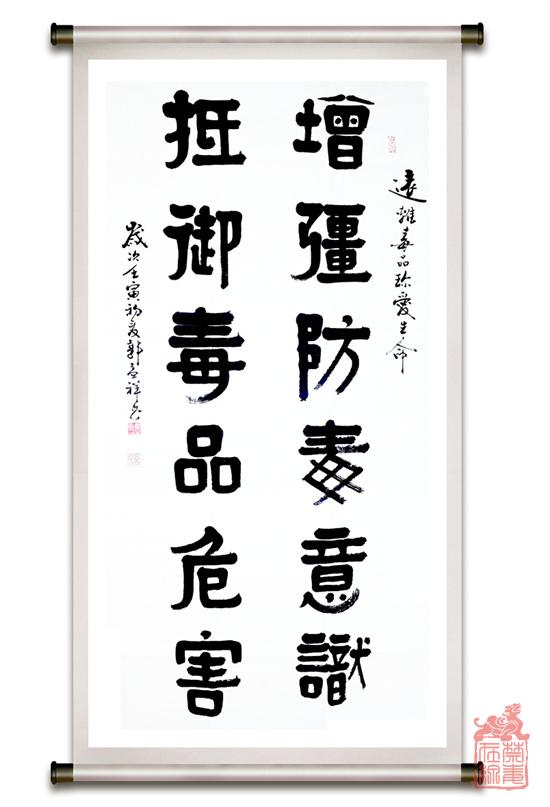 遠離毒品珍愛生命
增彊防毒意識
抵御毒品危害
歲次壬寅初夏郭祥书
禁毒在線